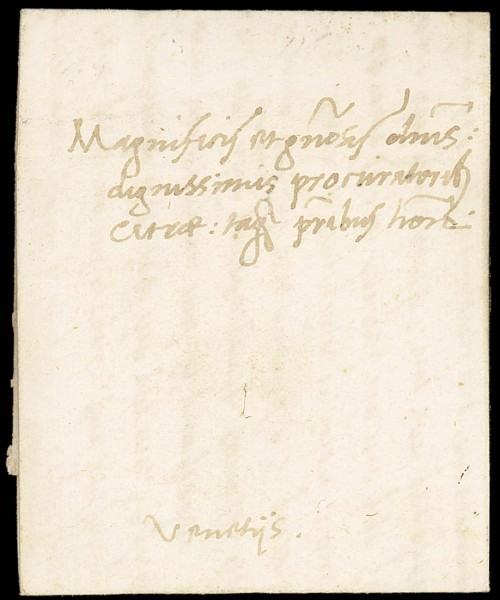 Magnificis et gn̄osis dnīs:
dignissimis procuratoribꝫ
Citrae: tanqꝫ pr̄ibus hon̄:
Venetijs.